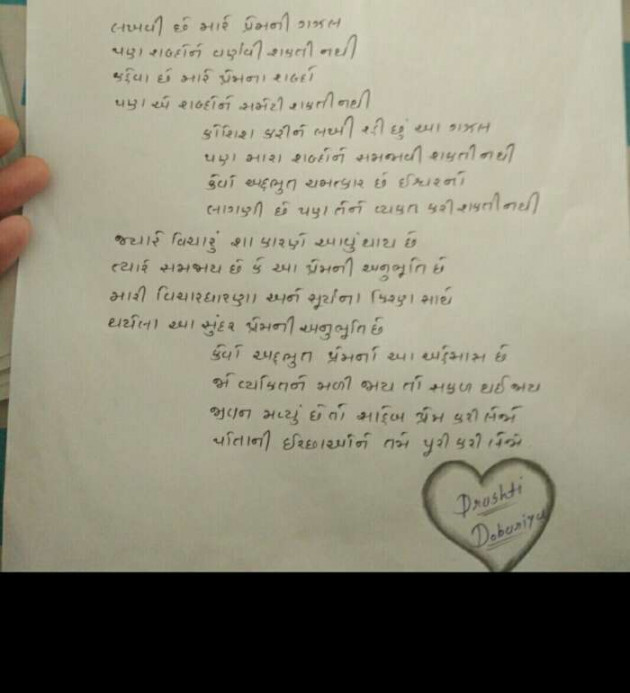 લખવી છે મારે પ્રેમની ગઝલ
પણ શબ્દોને વર્ણવી શકતી નથી
કહેવા છે મારે પ્રેમના શબ્દો
પણ એ શબ્દોને સમેટી શકતી નથી
કોશિશ કરીને લખી રહી છું આ ગઝલ
પણ મારા શબ્દોને સમજાવી શકતી નથી
કેવો અદ્ભુત ચમત્કાર છે ઈશ્વરનો
લાગણી છે પણ તેને વ્યક્ત કરી શકતી નથી
જ્યારે વિચારું શા કારણે આવું થાય છે
ત્યારે સમજાય છે કે આ પ્રેમની અનુભૂતિ છે
મારી વિચારધારણા અને સૂર્યના કિરણ સાથે
થયેલા આ સુંદર પ્રેમની અનુભૂતિ છે
કેવો અદ્ભુત પ્રેમનો આ અહેસાસ છે
જે વ્યક્તિને મળી જાય તો સફળ થઈ જાય
જીવન મળ્યું છે તો સાહેબ પ્રેમ કરી લેજો
પોતાની ઈચ્છાઓને તમે પૂરી કરી લેજો
Drushti
Dobariya